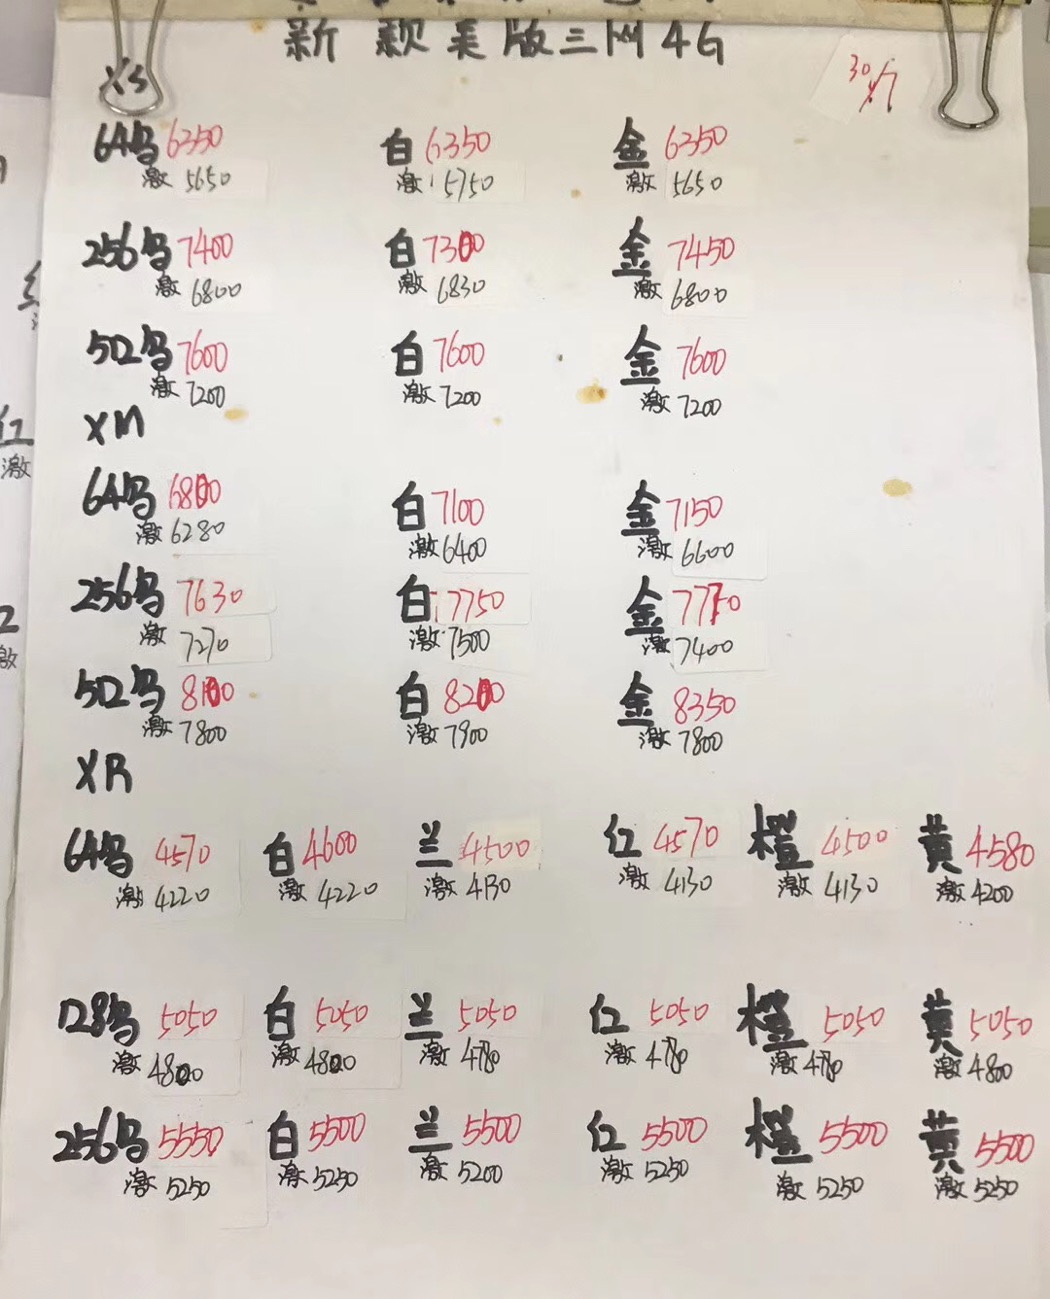 新款美版三网4G
30/7
XS
64乌 6350 白 6350 金 6350
激 5650 激 5750 激 5650
256乌 7400 白 7300 金 7450
激 6800 激 6830 激 6800
502乌 7600 白 7600 金 7600
激 7200 激 7200 激 7200
XM
64乌 6800 白 7100 金 7150
激 6280 激 6400 激 6600
256乌 7630 白 7750 金 7770
激 7270 激 7500 激 7400
502乌 8100 白 8200 金 8350
激 7800 激 7900 激 7800
XR
64乌 4570 白 4600 兰 4500 红 4570 橙 4500 黄 4580
激 4220 激 4220 激 4130 激 4130 激 4130 激 4200
128乌 5050 白 5050 兰 5050 红 5050 橙 5050 黄 5050
激 4800 激 4800 激 4780 激 4780 激 4780 激 4800
256乌 5550 白 5500 兰 5500 红 5500 橙 5500 黄 5500
激 5250 激 5250 激 5200 激 5250 激 5250 激 5250
红
激